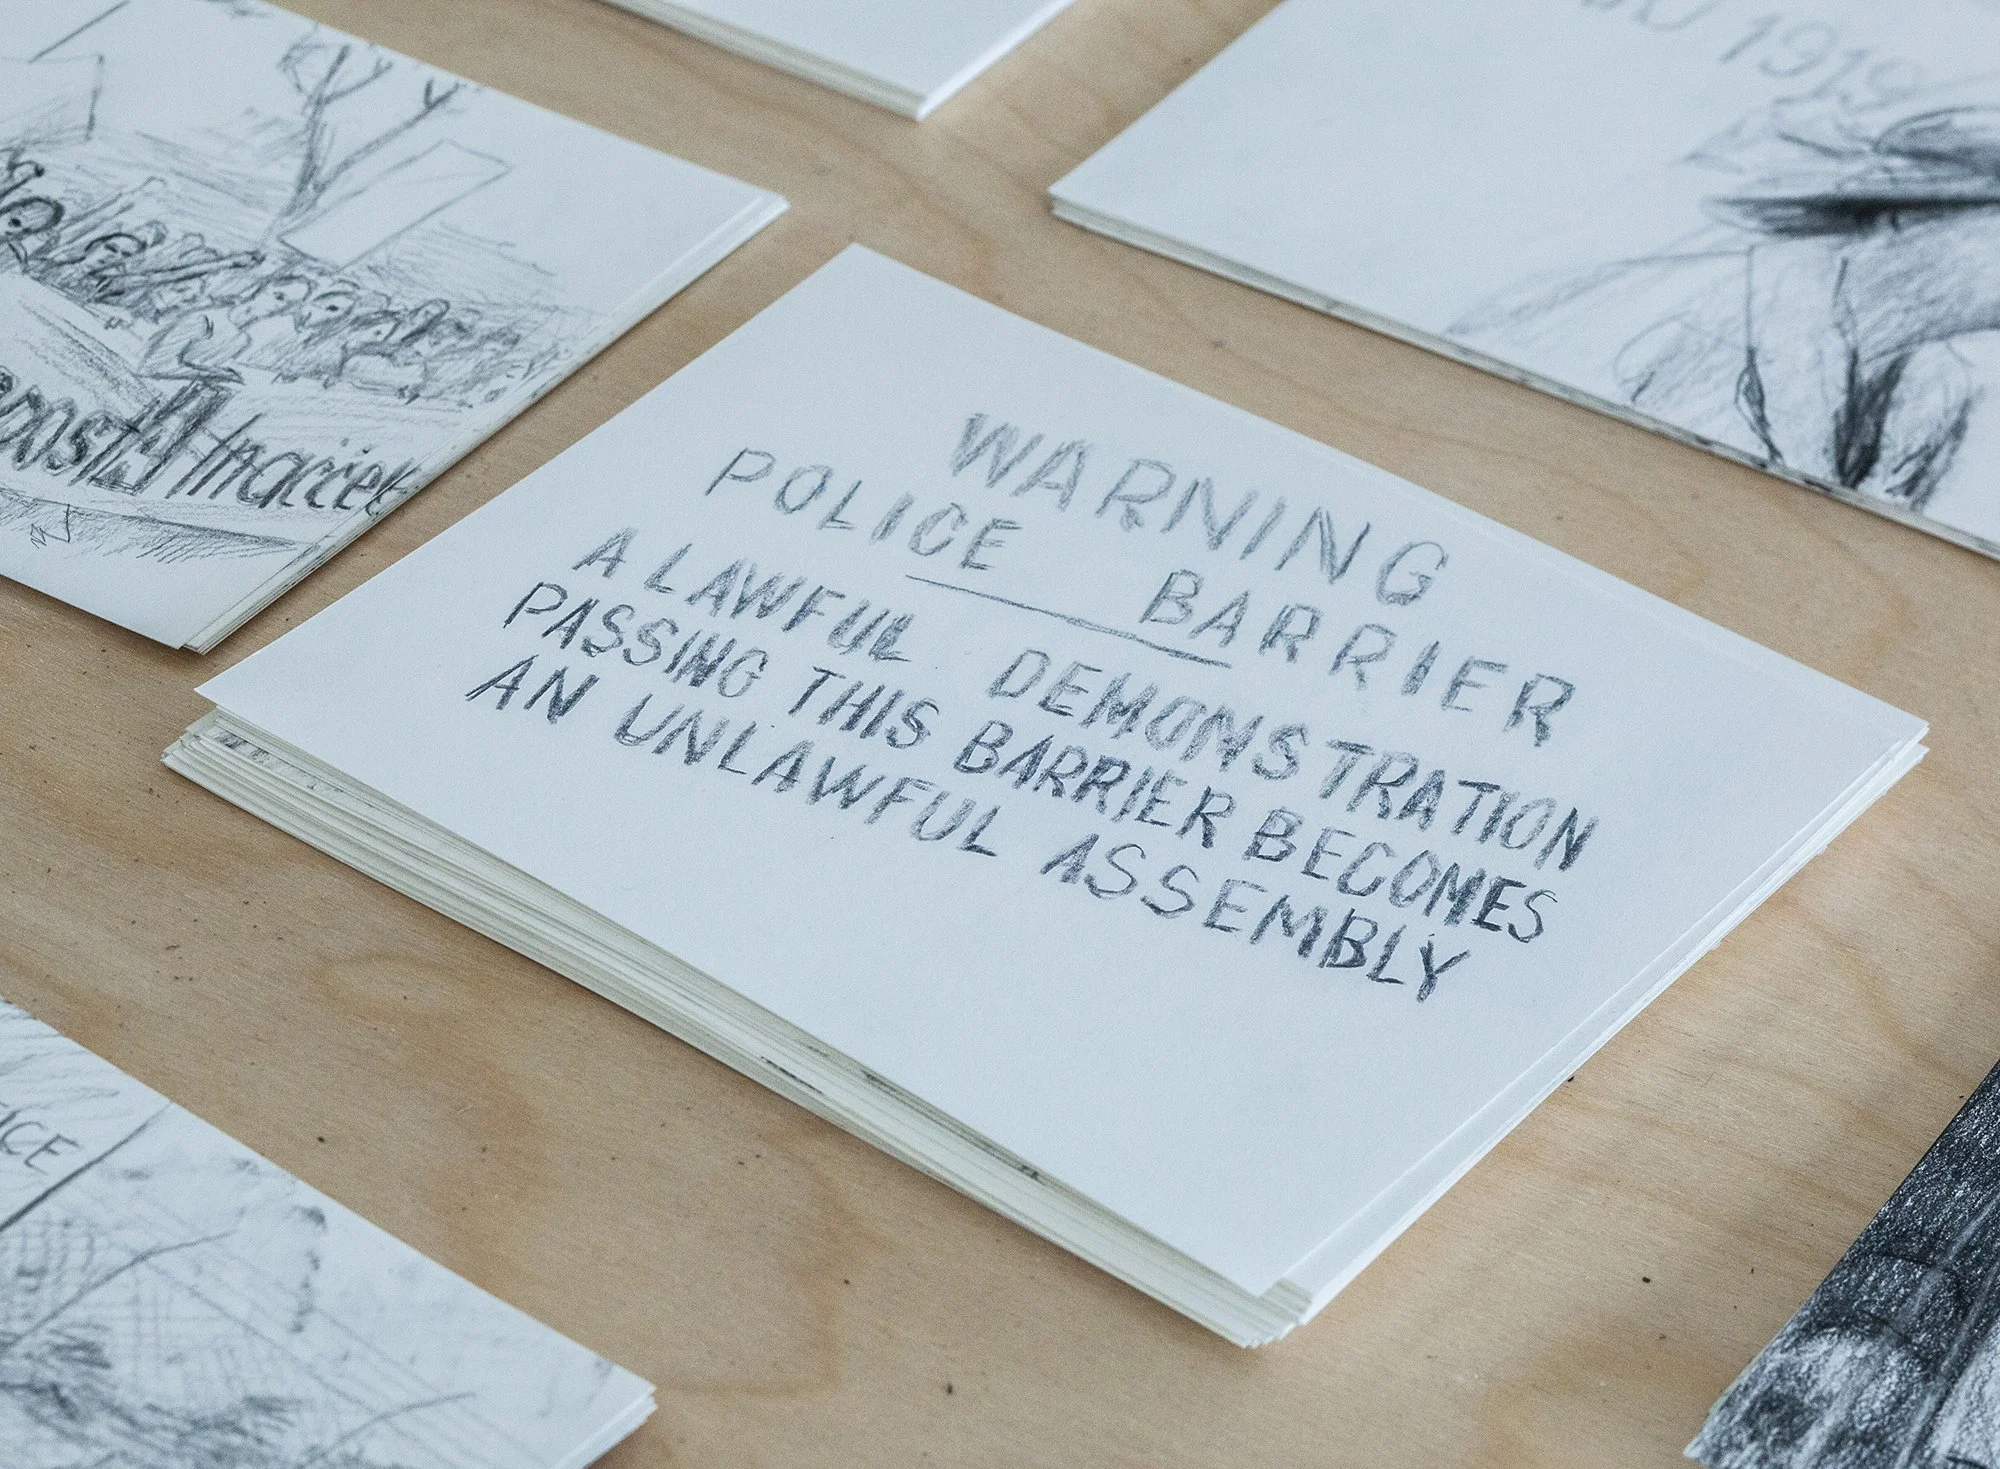 1919
WARNING
POLICE BARRIER
A LAWFUL DEMONSTRATION
PASSING THIS BARRIER BECOMES
AN UNLAWFUL ASSEMBLY